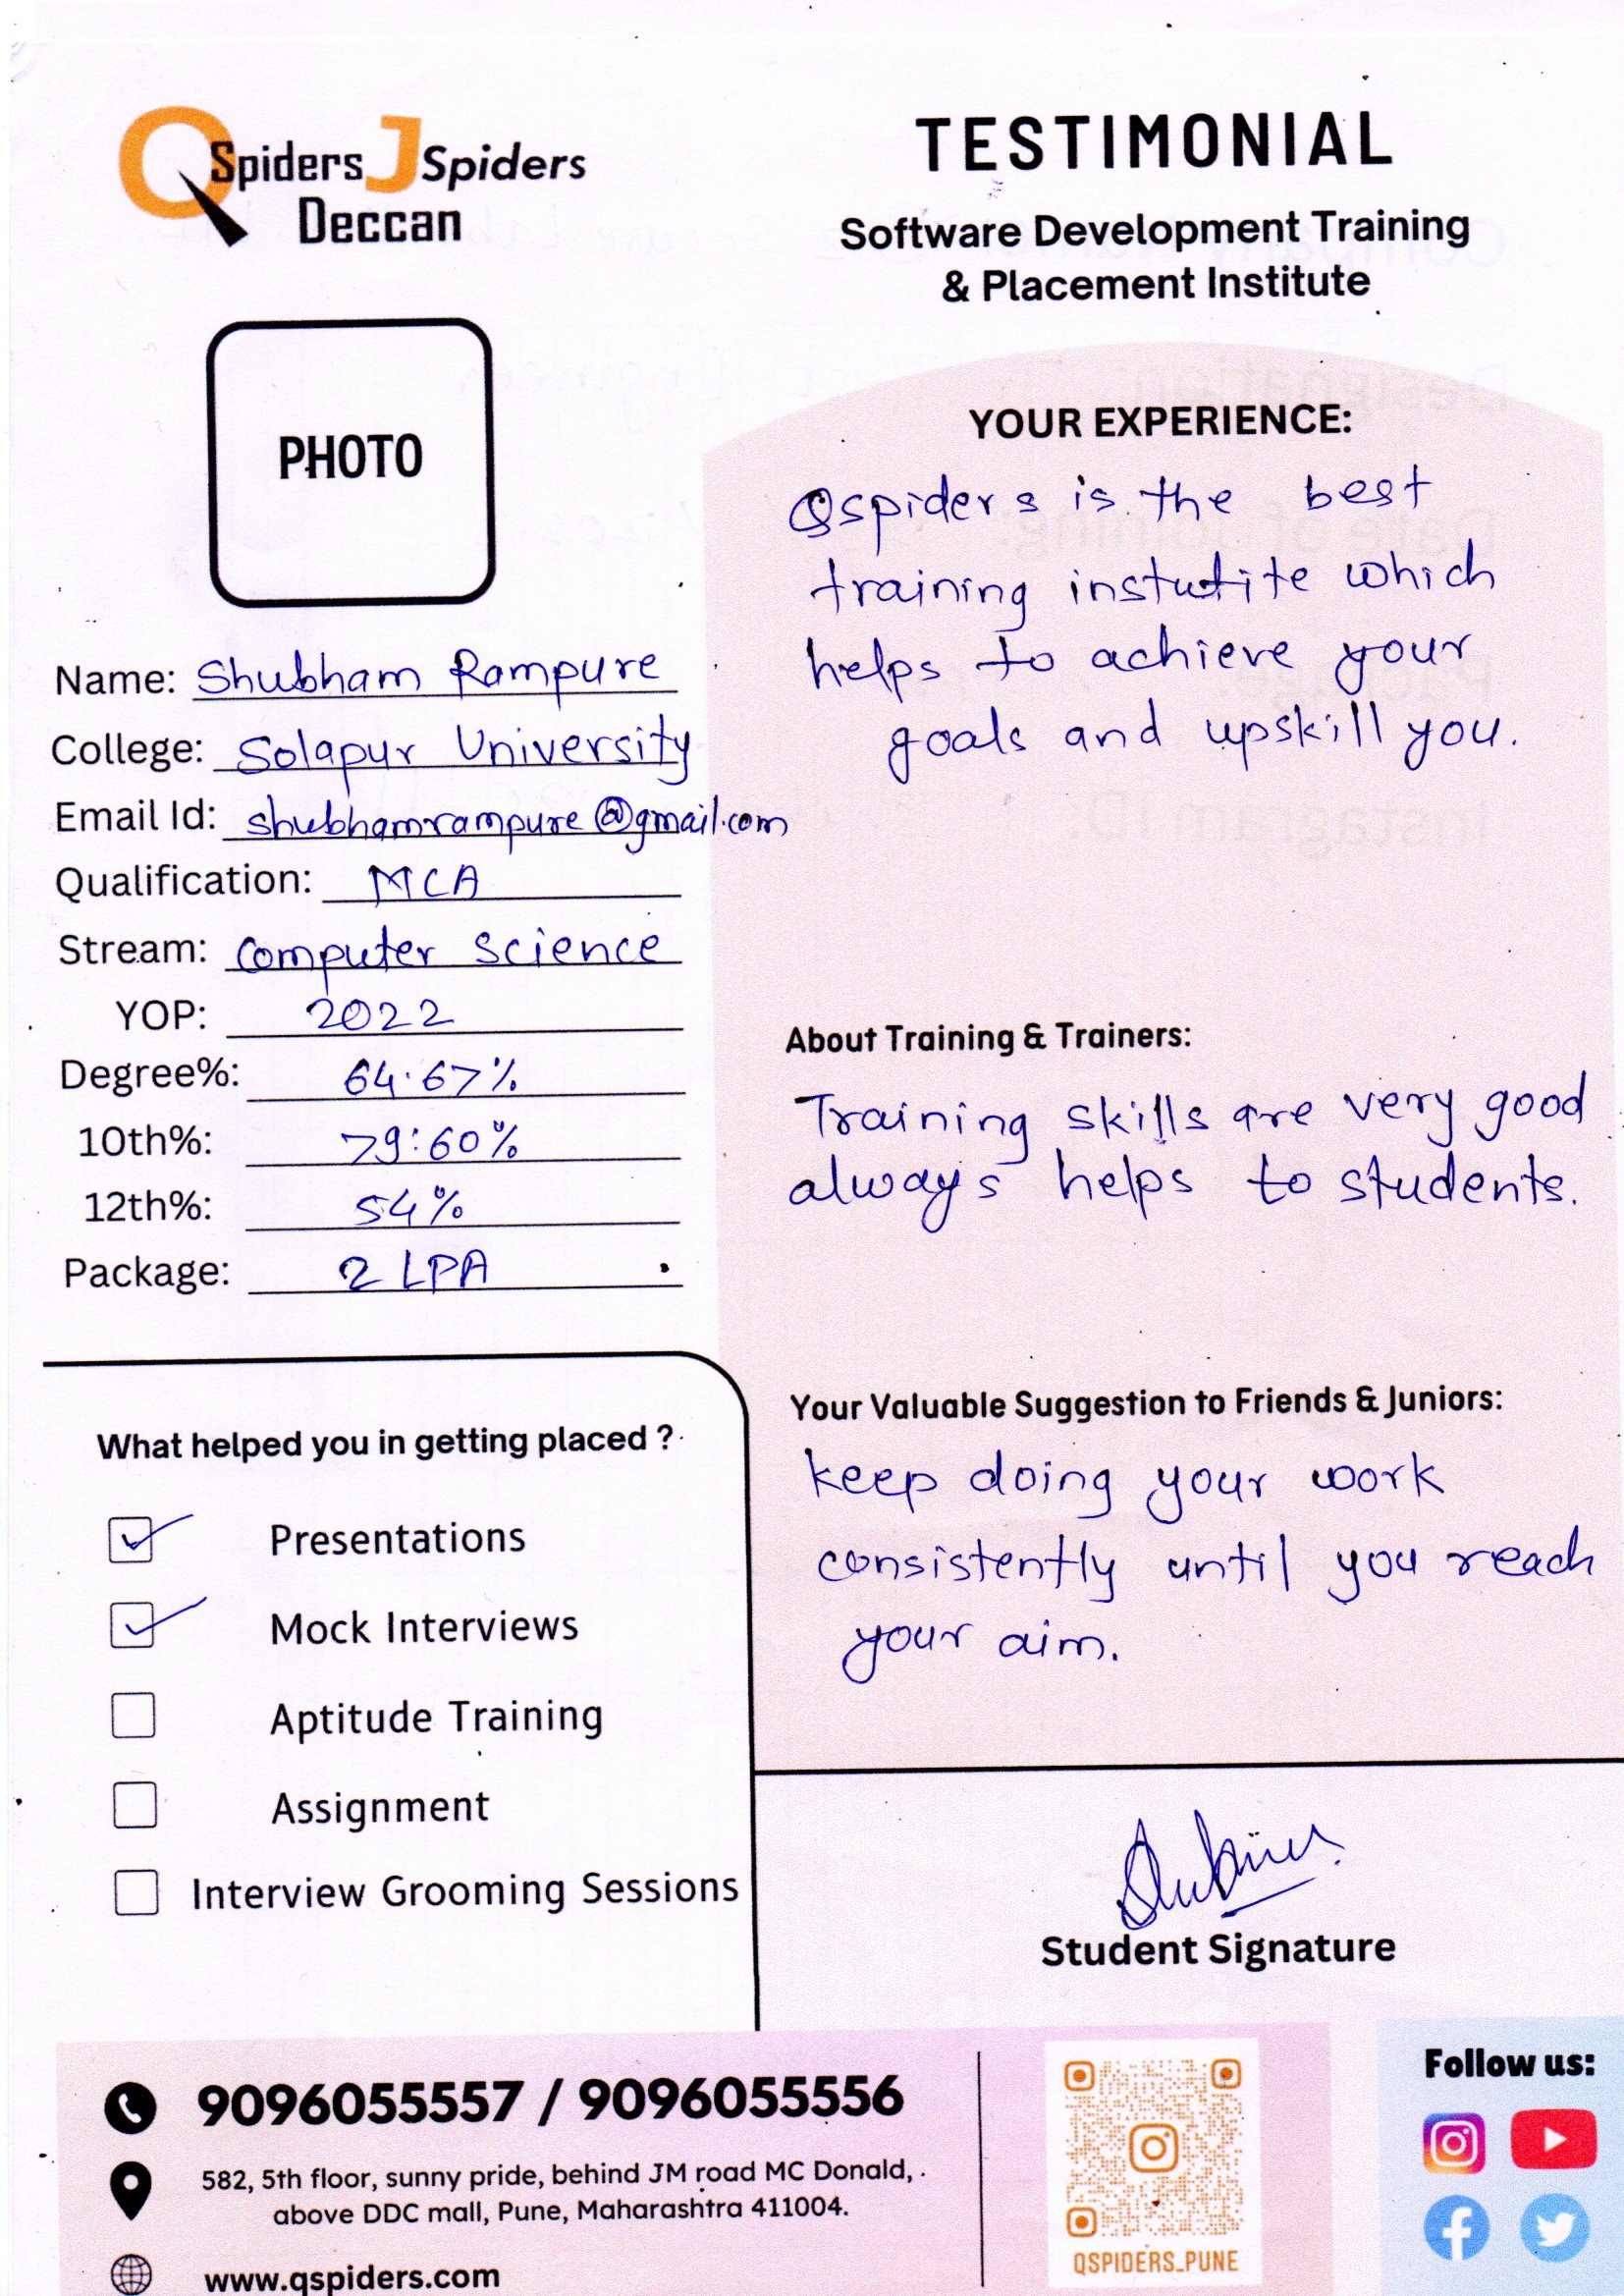 QSpiders JSpiders
Deccan
TESTIMONIAL
Software Development Training
& Placement Institute
PHOTO
Name: Shubham Rampure
College: Solapur University
Email Id: shubhamrampure@gmail.com
Qualification: MCA
Stream: Computer Science
YOP: 2022
Degree%: 64.67%
10th%: 79.60%
12th%: 54%
Package: 2 LPA
What helped you in getting placed ?
Presentations
Mock Interviews
Aptitude Training
Assignment
Interview Grooming Sessions
YOUR EXPERIENCE:
Qspiders is the best
training instutite which
helps to achieve your
goals and upskill you.
About Training & Trainers:
Training skills are very good
always helps to students.
Your Valuable Suggestion to Friends & Juniors:
keep doing your work
consistently until you reach
your aim.
Student Signature
9096055557 / 9096055556
582, 5th floor, sunny pride, behind JM road MC Donald,
above DDC mall, Pune, Maharashtra 411004.
www.qspiders.com
QSPIDERS_PUNE
Follow us: